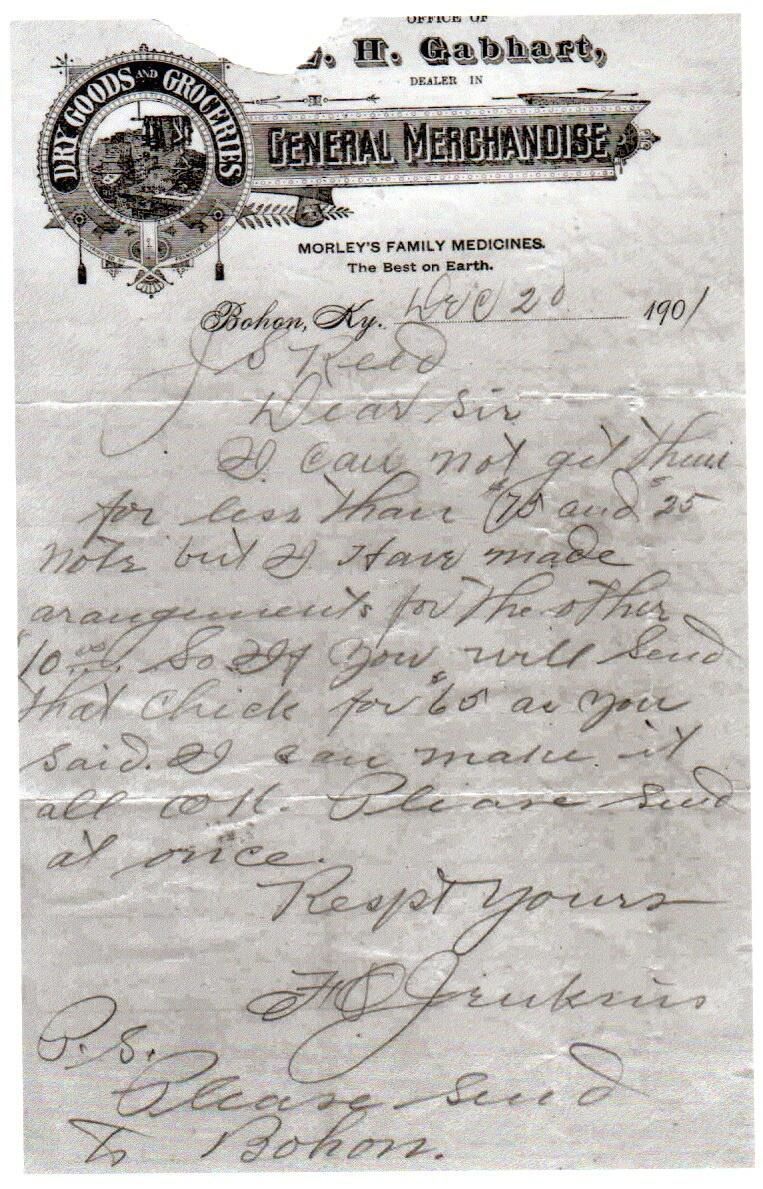 OFFICE OF
. H. Gabhart,
DEALER IN
DRY GOODS AND GROCERIES
GENERAL MERCHANDISE
MORLEY'S FAMILY MEDICINES.
The Best on Earth.
Bohon, Ky. Dec 20 1901
J S Reed
Dear Sir
I can not get them
for less than $75 and $25
note but I Have made
arangements for the other
$10 so If you will send
that Check for $65 as you
said. I can make it
all OK. Please send
at once.
Respt yours
Jenkins
P. S.
Please send
to Bohon.